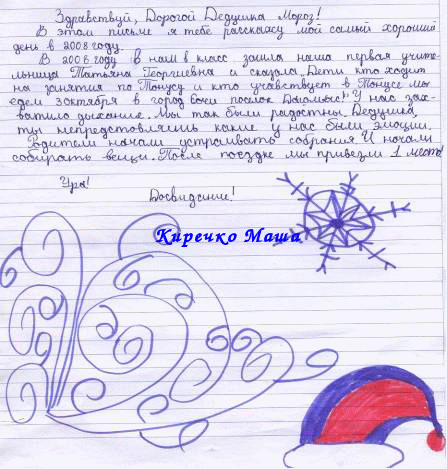 Здравствуй, Дорогой Дедушка Мороз!
В этом письме я тебе расскажу мой самый хороший
день в 2008 году.
В 2008 году в нам в класс зашла наша первая учите-
льница Татьяна Георгиевна и сказала "Дети кто ходит
на занятия по Тонусу и кто учавствует в Тонусе мы
едем 3 октября в город Сочи поселок Дагомыс!" У нас зах-
ватило дыхание. Мы так были радостны. Дедушка,
ты непредставляешь какие у нас были эмоции.
Родители начали устраивать собрания. И начали
собирать вещи. После поездке мы привезли 1 место!
Ура!
Досвидание!
Киречко Маша